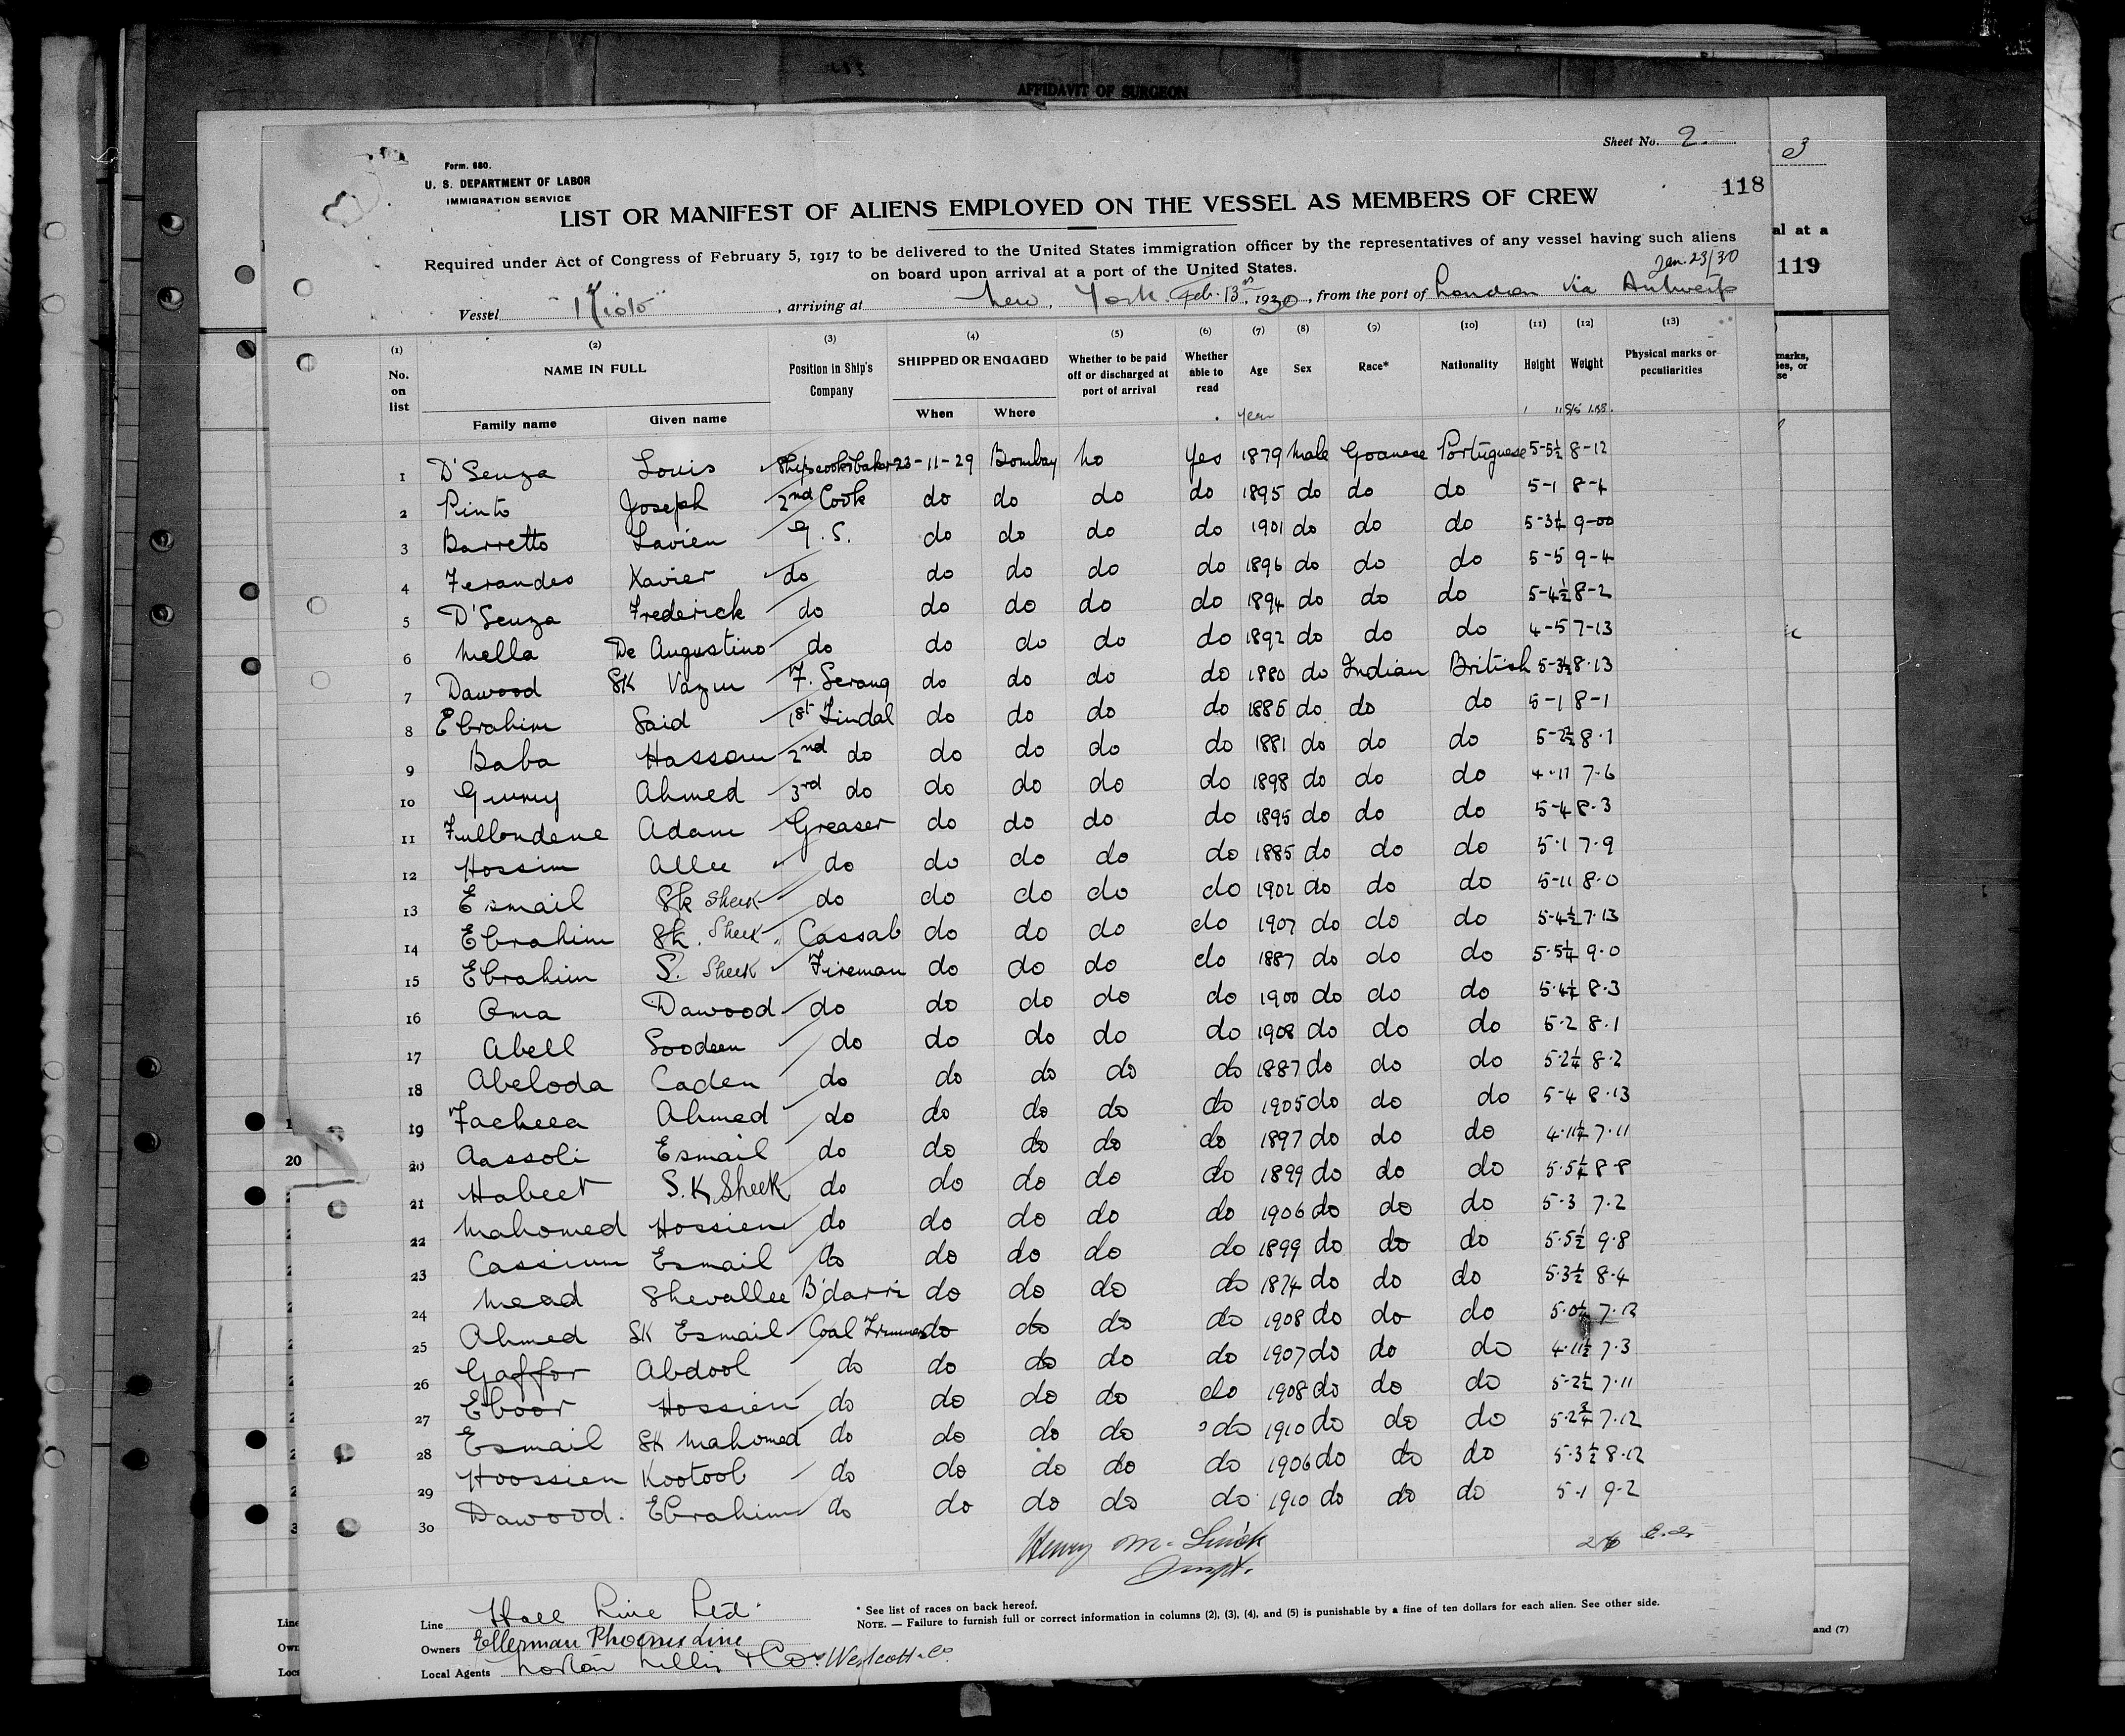 AFFIDAVIT OF SURGEON
Sheet No. 2.
3
Form. 680.
U. S. DEPARTMENT OF LABOR
IMMIGRATION SERVICE
118
LIST OR MANIFEST OF ALIENS EMPLOYED ON THE VESSEL AS MEMBERS OF CREW
al at a
Required under Act of Congress of February 5, 1917 to be delivered to the United States immigration officer by the representatives of any vessel having such aliens
on board upon arrival at a port of the United States.
Jan. 23/30
119
Vessel "Kioto" , arriving at New York. Feb. 13th, 1930, from the port of London via Antwerp
(1) (2) (3) (4) (5) (6) (7) (8) (9) (10) (11) (12) (13)
No. on list NAME IN FULL Position in Ship's Company SHIPPED OR ENGAGED Whether to be paid off or discharged at port of arrival Whether able to read Age Sex Race* Nationality Height Weight Physical marks or peculiarities
Family name Given name When Where year
1 D'Souza Louis Ships cook & baker 23-11-29 Bombay No Yes 1879 Male Goanese Portuguese 5-5½ 8-12
2 Pinto Joseph 2nd Cook do do do do 1895 do do do 5-1 8-4
3 Barretto Lavien G. S. do do do do 1901 do do do 5-3¼ 9-00
4 Ferandes Xavier do do do do do 1896 do do do 5-5 9-4
5 D'Souza Frederick do do do do do 1894 do do do 5-4½ 8-2
6 Mella De Augustino do do do do do 1892 do do do 4-5 7-13
7 Dawood SK Vazir F. Serang do do do do 1880 do Indian British 5-3½ 8.13
8 Ebrahim Said 1st Tindal do do do do 1885 do do do 5-1 8-1
9 Baba Hassan 2nd do do do do do 1881 do do do 5-2½ 8.1
10 Ahmed 3rd do do do do do 1898 do do do 4.11 7.6
11 Fullondene Adam Greaser do do do do 1895 do do do 5-4 8.3
12 Hossim Allee do do do do do 1885 do do do 5.1 7.9
13 Esmail Sk Sheek do do do do do 1902 do do do 5-11 8.0
14 Ebrahim Sk. Sheek Cassab do do do do 1907 do do do 5-4½ 7.13
15 Ebrahim S. Sheek Fireman do do do do 1887 do do do 5.5¼ 9.0
16 Oma Dawood do do do do do 1900 do do do 5.4½ 8.3
17 Abell Soodeen do do do do do 1908 do do do 5.2 8.1
18 Abeloda Caden do do do do do 1887 do do do 5.2¼ 8.2
19 Facheea Ahmed do do do do do 1905 do do do 5-4 8.13
20 Aassoli Esmail do do do do do 1897 do do do 4.11½ 7.11
21 Habeet S.K. Sheek do do do do do 1899 do do do 5.5¼ 8-8
22 Mahomed Hossien do do do do do 1906 do do do 5.3 7.2
23 Cassium Esmail do do do do do 1899 do do do 5.5½ 9.8
24 Mead Shevallee B'darri do do do do 1874 do do do 5.3½ 8.4
25 Ahmed SK Esmail Coal Trimmer do do do do 1908 do do do 5.0¼ 7.12
26 Gaffor Abdool do do do do do 1907 do do do 4.11½ 7.3
27 Eboor Hossien do do do do do 1908 do do do 5-2½ 7.11
28 Esmail SK Mahomed do do do do do 1910 do do do 5.2¾ 7.12
29 Hoossien Kootoob do do do do do 1906 do do do 5.3½ 8.12
30 Dawood. Ebrahim do do do do do 1910 do do do 5.1 9.2
Line Hall Line Ltd.
* See list of races on back hereof.
NOTE. — Failure to furnish full or correct information in columns (2), (3), (4), and (5) is punishable by a fine of ten dollars for each alien. See other side.
and (7)
Owners Ellerman Phoenix Line
Local Agents Norton Lilly & Co. Wescott & Co.